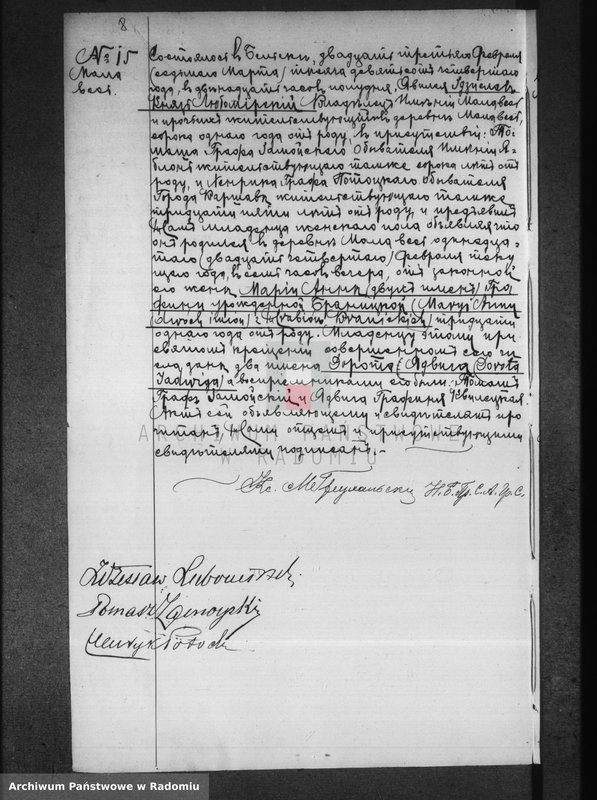 8
№ 15
Мала
весь.
Состоялось въ Белске, двадцать третьяго Февраля
(седьмаго Марта) тысяча девятьсотъ четвертаго
года, въ двенадцать часовъ полудня. Явился Здзиславъ
Князь Любомірскій владѣлецъ имѣнія Малавесь
и прочихъ жительствующій въ деревнѣ Малавесь,
сорока одного года отъ роду, въ присутствіи: То-
маша Графа Замойскаго обывателя имѣнія
жительствующаго также сорока лѣтъ отъ
роду, и Генрика Графа Потоцкаго обывателя
Города Варшавы жительствующаго также
тридцати пяти лѣтъ отъ роду, и предъявилъ
Намъ младенца женскаго пола объявляя что
онъ родился въ деревнѣ Малавесь одиннадца-
таго (двадцать четвертаго) Февраля теку-
щаго года, въ семь часовъ вечера, отъ законной
его жены Маріи Анны (двухъ именъ) Гра-
фини урожденной Браницкой (Maryi Anny
dwoch imion) z Hrabiow Branickich) тридцати
одного года отъ роду. Младенцу этому при
святомъ крещеніи совершенномъ сего чи-
сла даны два имена Дорота-Ядвига (Dorota
Jadwiga) а воспріемниками его были: Томашъ
Графъ Замойскій и Ядвига Графиня Квилецкая.
Актъ сей объявляющему и свидѣтелямъ про-
читанъ Нами отцемъ и присутствующими
свидѣтелями подписанъ.-
ARCHIWUM PAŃSTWOWE
W RADOMIU
Кс. М.
Zdzisław Lubomirski
Tomasz Zamoyski
Henryk Potocki
Archiwum Państwowe w Radomiu